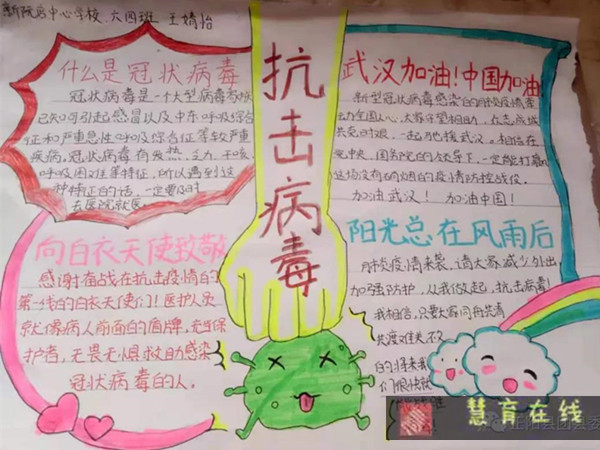 新阮店中心学校 六四班 王婧怡
抗击病毒
什么是冠状病毒
冠状病毒是一个大型病毒家族
已知可引起感冒以及中东呼吸综合
征和严重急性呼吸综合征等较严重
疾病。冠状病毒有发热、乏力、干咳
呼吸困难等特征，所以遇到这
种特征的话，一定要及时
去医院就医。
武汉加油！中国加油
新型冠状病毒感染的肺炎疫情牵
动全国人心，大家守望相助，众志成城
共克时艰，一起驰援武汉。相信在
党中央、国务院的领导下，一定能打赢
这场没有硝烟的疫情防控战役。
加油武汉！ 加油中国！
向白衣天使致敬
感谢奋战在抗击疫情的
第一线的白衣天使们！医护人员
就像病人前面的盾牌，无当保
护者，无畏无惧救助感染
冠状病毒的人。
阳光总在风雨后
肺炎疫情来袭，请大家减少外出
加强防护，从我做起，抗击病毒！
我相信，只要大家同舟共济
共渡难关，不久
的将来我
们很快就
慧育在线
正阳县团县委